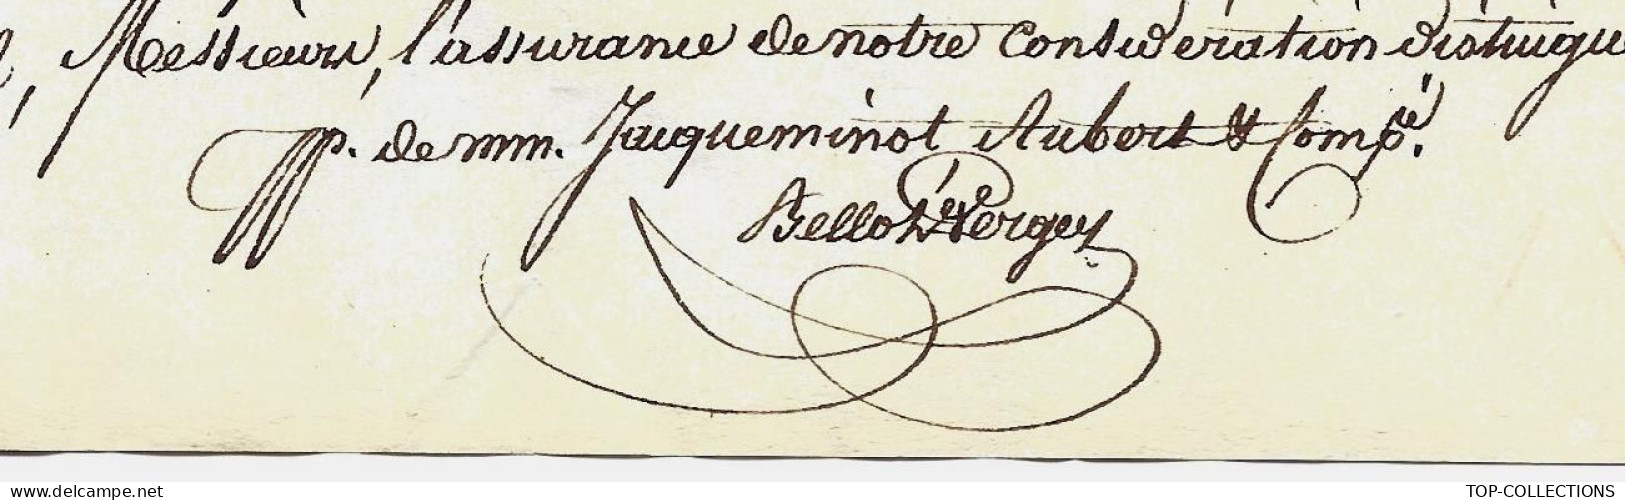 , Messieurs, l'assurance de notre Considération distingu
pp. de mm. Jacqueminot Aubert & Compé.
Bellot Vergey
TOP-COLLECTIONS